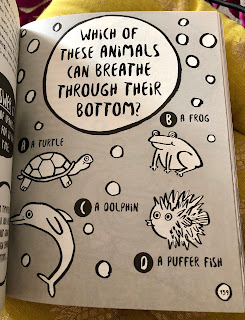 WHICH OF
THESE ANIMALS
CAN BREATHE
THROUGH THEIR
BOTTOM?
B A FROG
A A TURTLE
C A DOLPHIN
D A PUFFER FISH
139